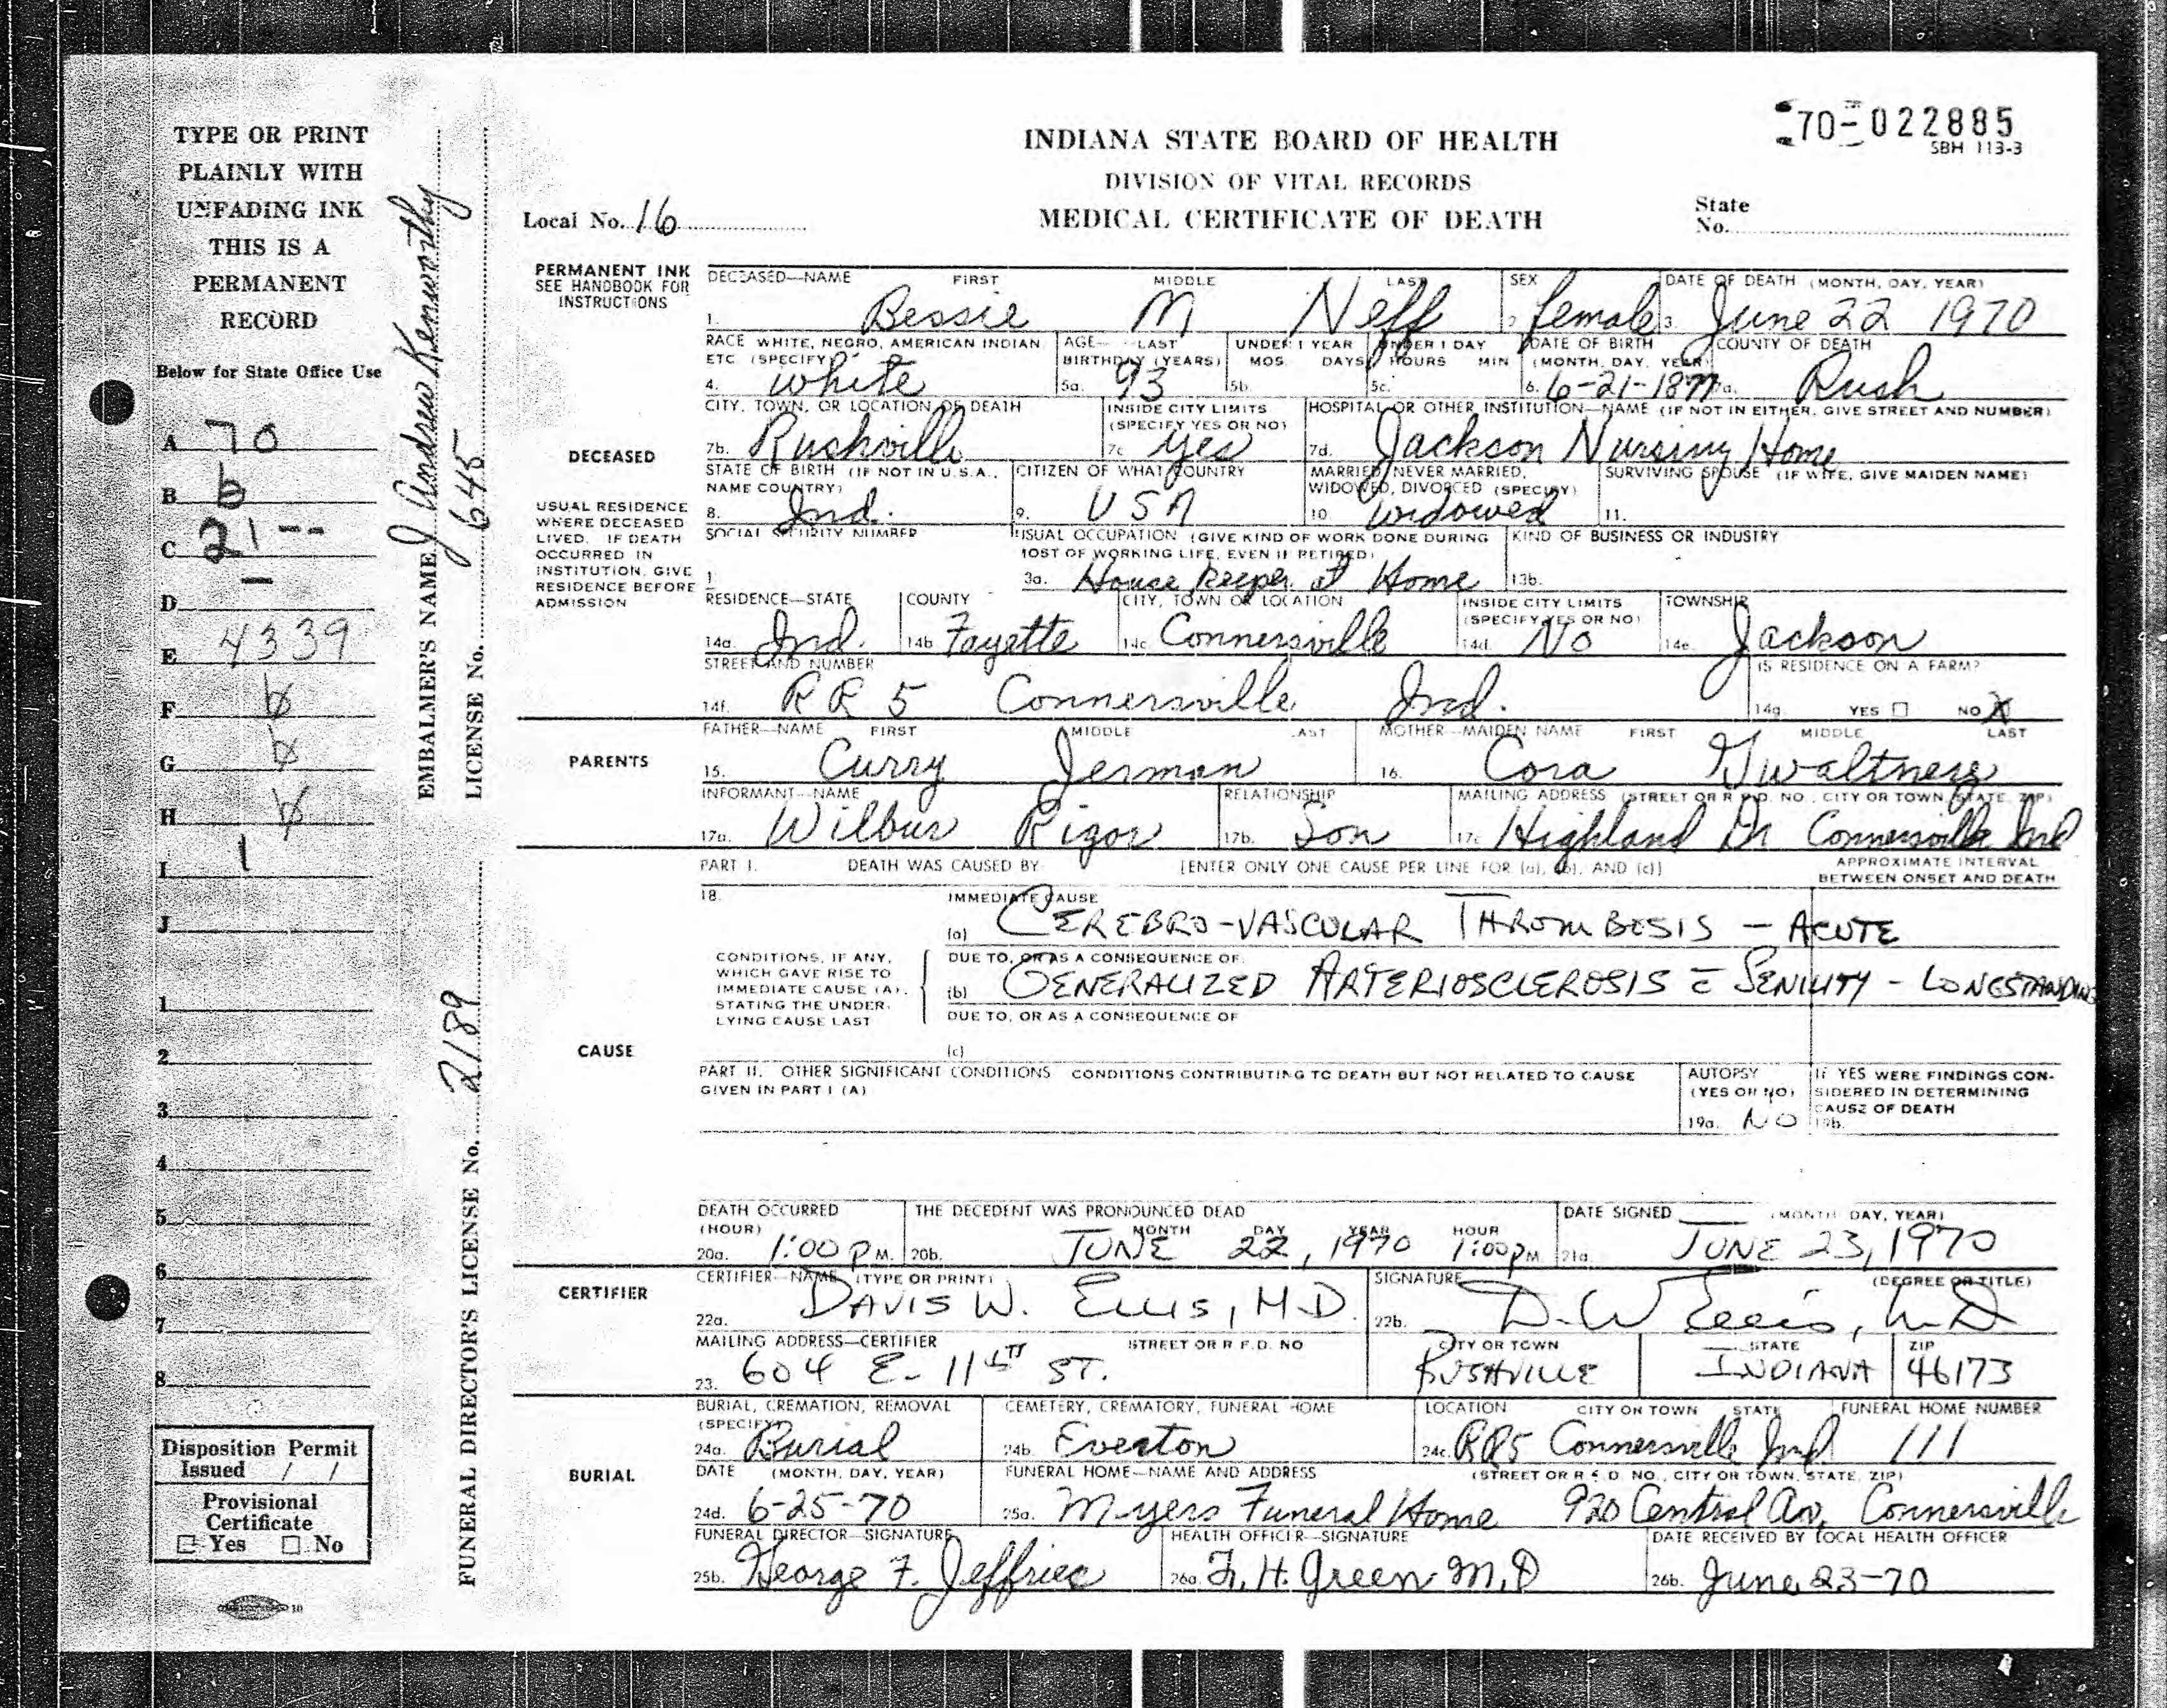 70-022885
SBH 113-3
INDIANA STATE BOARD OF HEALTH
DIVISION OF VITAL RECORDS
MEDICAL CERTIFICATE OF DEATH
Local No. 16
State
No.
TYPE OR PRINT
PLAINLY WITH
UNFADING INK
THIS IS A
PERMANENT
RECORD
Below for State Office Use
A 70
B 6
C 21--
D -
E 4339
F
G
H
I 1
J
1
2
3
4
5
6
7
8
Disposition Permit
Issued / /
Provisional
Certificate
Yes No
10
EMBALMER'S NAME J Andrew Kenworthy
LICENSE No. 645
FUNERAL DIRECTOR'S LICENSE No. 2189
PERMANENT INK
SEE HANDBOOK FOR
INSTRUCTIONS
DECEASED
USUAL RESIDENCE
WHERE DECEASED
LIVED. IF DEATH
OCCURRED IN
INSTITUTION, GIVE
RESIDENCE BEFORE
ADMISSION
DECEASED—NAME FIRST MIDDLE LAST SEX DATE OF DEATH (MONTH, DAY, YEAR)
1. Bessie M Neff 2 female 3. June 22 1970
RACE WHITE, NEGRO, AMERICAN INDIAN, AGE—LAST UNDER 1 YEAR UNDER 1 DAY DATE OF BIRTH COUNTY OF DEATH
ETC. (SPECIFY) BIRTHDAY (YEARS) MOS. DAYS HOURS MIN (MONTH, DAY, YEAR)
4. white 5a. 93 5b. 5c. 6. 6-21-1877 7a. Rush
CITY, TOWN, OR LOCATION OF DEATH INSIDE CITY LIMITS HOSPITAL OR OTHER INSTITUTION—NAME (IF NOT IN EITHER, GIVE STREET AND NUMBER)
(SPECIFY YES OR NO)
7b. Rushville 7c yes 7d. Jackson Nursing Home
STATE OF BIRTH (IF NOT IN U.S.A., CITIZEN OF WHAT COUNTRY MARRIED, NEVER MARRIED, SURVIVING SPOUSE (IF WIFE, GIVE MAIDEN NAME)
NAME COUNTRY) WIDOWED, DIVORCED (SPECIFY)
8. Ind. 9. USA 10. widowed 11.
SOCIAL SECURITY NUMBER USUAL OCCUPATION (GIVE KIND OF WORK DONE DURING KIND OF BUSINESS OR INDUSTRY
MOST OF WORKING LIFE, EVEN IF RETIRED)
1 3a. House keeper at Home 13b.
RESIDENCE—STATE COUNTY CITY, TOWN OR LOCATION INSIDE CITY LIMITS TOWNSHIP
(SPECIFY YES OR NO)
14a. Ind. 14b Fayette 14c Connersville 14d. No 14e. Jackson
STREET AND NUMBER IS RESIDENCE ON A FARM?
14f. RR 5 Connersville Ind. 14g. YES NO X
PARENTS
FATHER—NAME FIRST MIDDLE LAST MOTHER—MAIDEN NAME FIRST MIDDLE LAST
15. Curry Jerman 16. Cora Gwaltney
INFORMANT—NAME RELATIONSHIP MAILING ADDRESS (STREET OR R.F.D. NO., CITY OR TOWN, STATE, ZIP)
17a. Wilbur Rigor 17b. Son 17c Highland Dr Connersville Ind
PART I. DEATH WAS CAUSED BY [ENTER ONLY ONE CAUSE PER LINE FOR (a), (b), AND (c)] APPROXIMATE INTERVAL
BETWEEN ONSET AND DEATH
18. IMMEDIATE CAUSE
(a) CEREBRO-VASCULAR THROMBOSIS - ACUTE
CAUSE
CONDITIONS, IF ANY,
WHICH GAVE RISE TO
IMMEDIATE CAUSE (A).
STATING THE UNDER-
LYING CAUSE LAST
DUE TO, OR AS A CONSEQUENCE OF:
(b) GENERALIZED ARTERIOSCLEROSIS SENILITY - LONGSTANDING
DUE TO, OR AS A CONSEQUENCE OF
(c)
PART II. OTHER SIGNIFICANT CONDITIONS CONDITIONS CONTRIBUTING TO DEATH BUT NOT RELATED TO CAUSE
GIVEN IN PART I (A)
AUTOPSY
(YES OR NO)
19a. NO
IF YES WERE FINDINGS CON-
SIDERED IN DETERMINING
CAUSE OF DEATH
19b.
DEATH OCCURRED THE DECEDENT WAS PRONOUNCED DEAD DATE SIGNED (MONTH, DAY, YEAR)
(HOUR) MONTH DAY YEAR HOUR
20a. 1:00 P M. 20b. JUNE 22, 1970 1:00 P M. 21a. JUNE 23, 1970
CERTIFIER
CERTIFIER—NAME (TYPE OR PRINT) SIGNATURE (DEGREE OR TITLE)
22a. DAVIS W. ELLIS, M.D. 22b. D. W Ellis, M.D
MAILING ADDRESS—CERTIFIER STREET OR R.F.D. NO CITY OR TOWN STATE ZIP
23. 604 E. 11TH ST. RUSHVILLE INDIANA 46173
BURIAL
BURIAL, CREMATION, REMOVAL CEMETERY, CREMATORY, FUNERAL HOME LOCATION CITY OR TOWN STATE FUNERAL HOME NUMBER
(SPECIFY)
24a. Burial 24b. Everton 24c. RR5 Connersville Ind. 111
DATE (MONTH, DAY, YEAR) FUNERAL HOME—NAME AND ADDRESS (STREET OR R.F.D. NO., CITY OR TOWN, STATE, ZIP)
24d. 6-25-70 25a. Myers Funeral Home 920 Central Av, Connersville
FUNERAL DIRECTOR—SIGNATURE HEALTH OFFICER—SIGNATURE DATE RECEIVED BY LOCAL HEALTH OFFICER
25b. George F. Jeffries 26a. F. H. Green M.D 26b. June 23-70